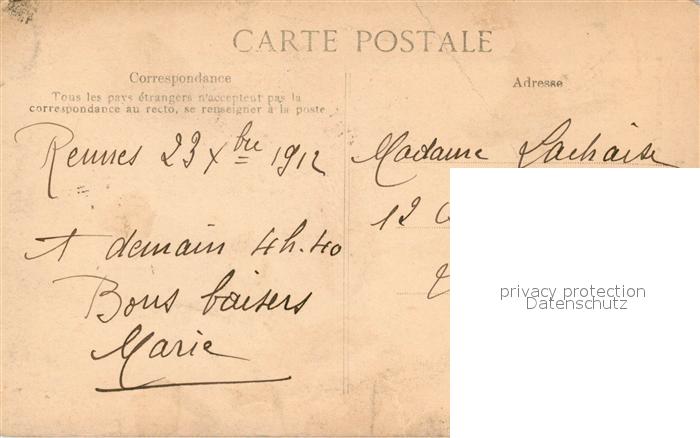 CARTE POSTALE
Correspondance
Tous les pays étrangers n'acceptent pas la
correspondance au recto, se renseigner à la poste
Rennes 23 Xbre 1912
A demain 4h.40
Bons baisers
Marie
Adresse
Madame Lachaise
12
privacy protection
Datenschutz